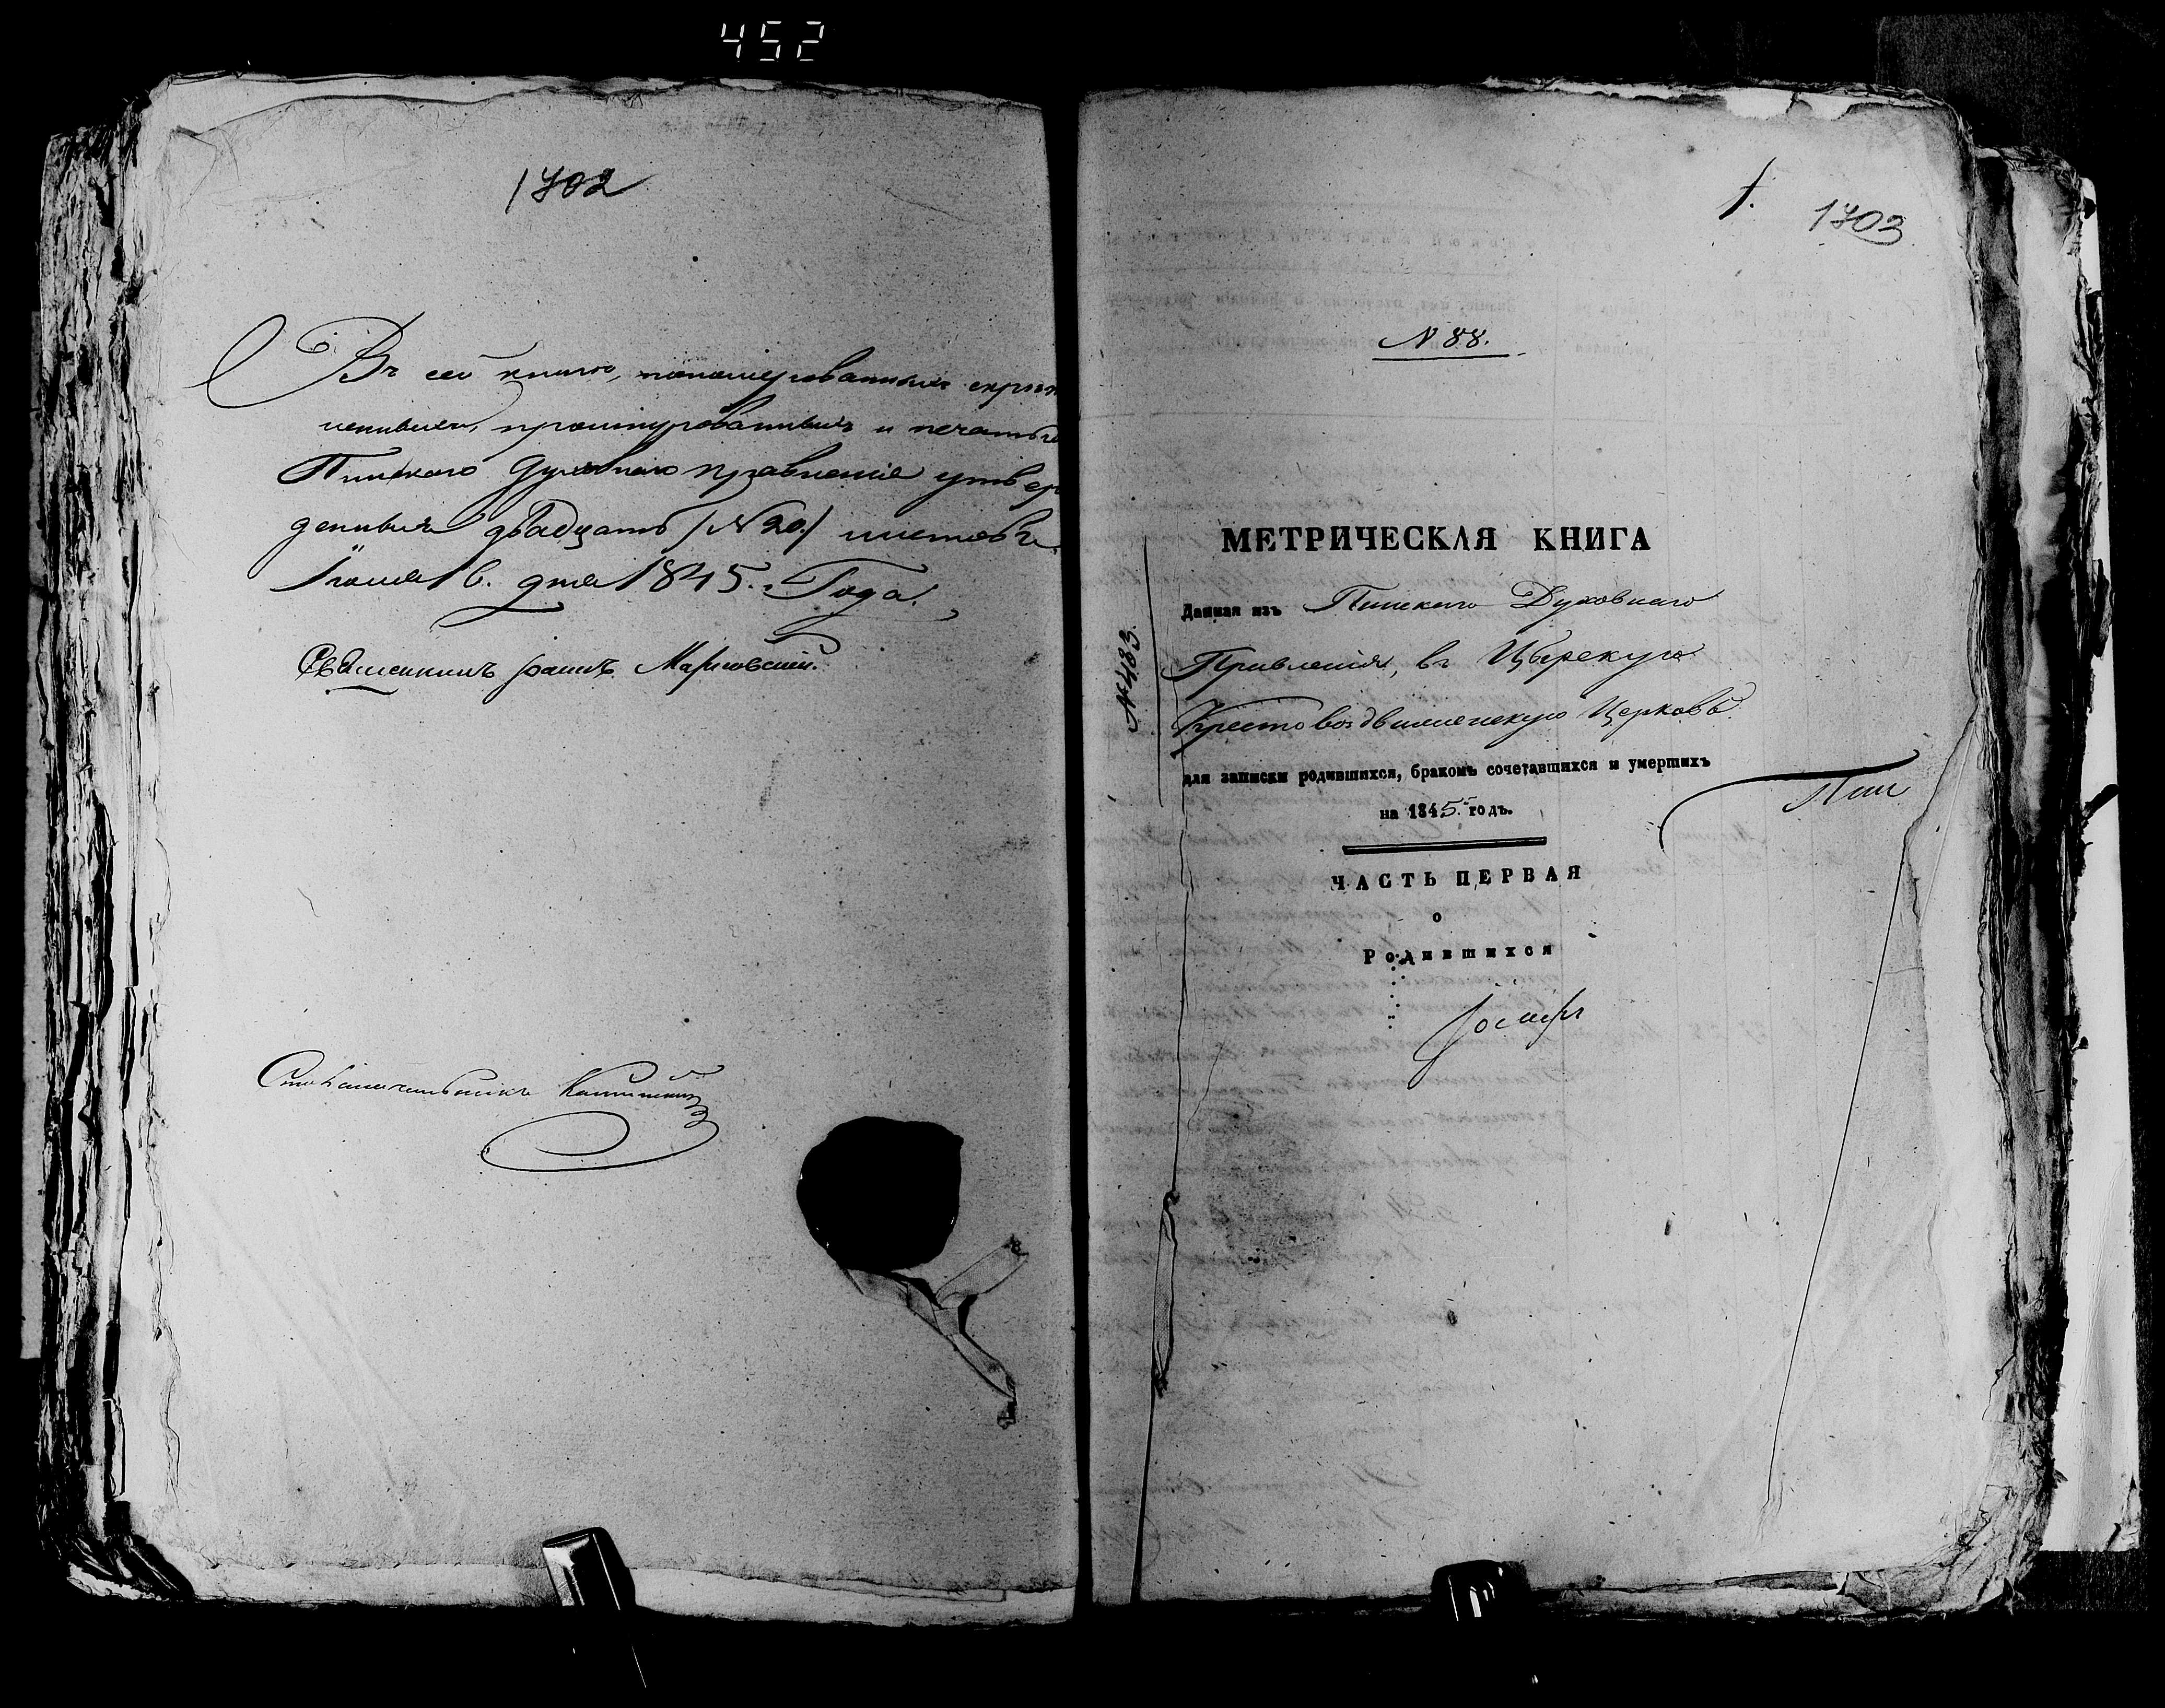 452
1702
Въ сей книгѣ, пономерованныхъ скрѣп
ленныхъ, прошнурованныхъ и печатью
Пинскаго Духовнаго правленія утвер
денныхъ двадцать /№ 20./ листовъ
Іюля 6. дня 1845. Года.
Священникъ Іоаннъ
Столоначальникъ
1. 1703
N 88.
МЕТРИЧЕСКАЯ КНИГА
Данная изъ Пинскаго Духовнаго
Правленія, въ Цѣрскую
Крестовоздвиженскую Церковь.
для записки родившихся, бракомъ сочетавшихся и умершихъ
на 1845. годъ.
Пин
ЧАСТЬ ПЕРВАЯ
о
Родившихся
Іосифъ
№ 483.